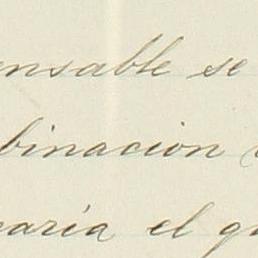 ensable se
binacion
naría el